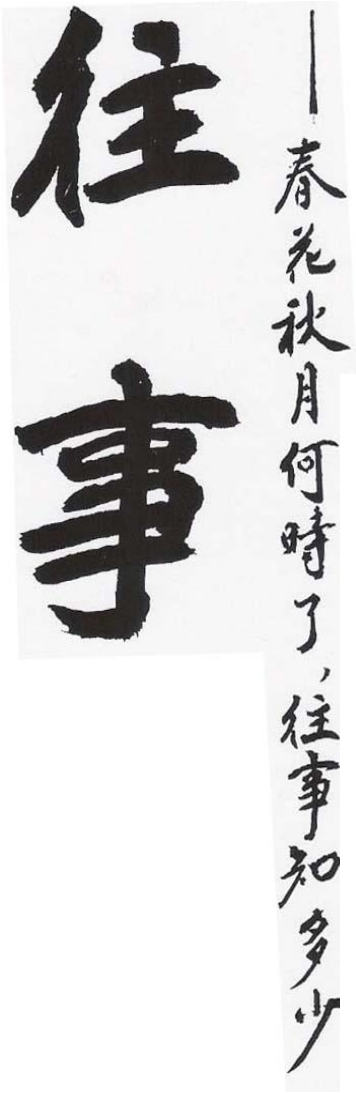 往事
——春花秋月何時了，往事知多少